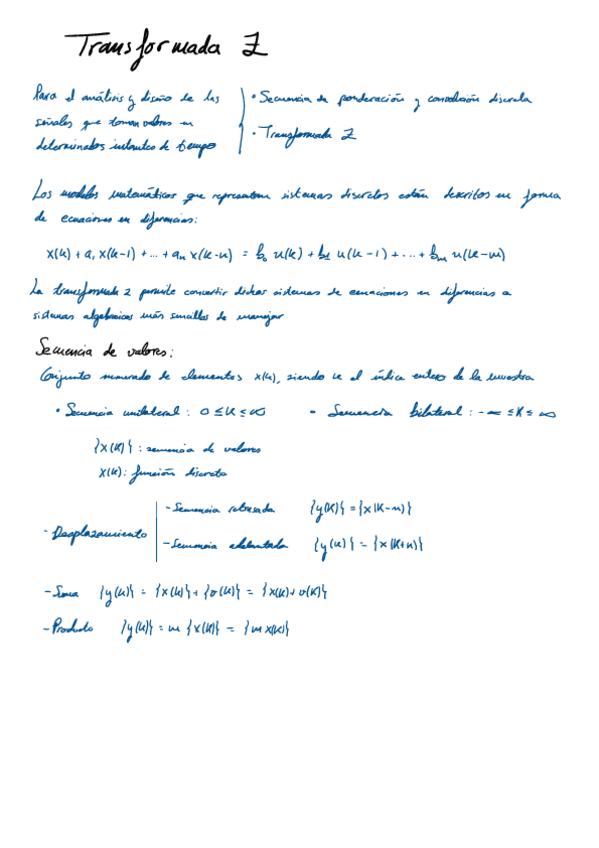 Transformada Z
Para el análisis y diseño de las
señales que toman valores en
determinados instantes de tiempo
• Secuencia de ponderación y convolución discreta
• Transformada Z
Los modelos matemáticos que representan sistemas discretos están descritos en forma
de ecuaciones en diferencias:
x(k) + a₁ x(k-1) + ... + aₙ x(k-n) = b₀ u(k) + b₁ u(k-1) + ... + bₘ u(k-m)
La transformada Z permite convertir dichos sistemas de ecuaciones en diferencias a
sistemas algebraicos más sencillos de manejar
Secuencia de valores:
Conjunto numerado de elementos x(k), siendo k el índice entero de la muestra
• Secuencia unilateral: 0 ≤ k ≤ ∞
- Secuencia bilateral: -∞ ≤ k ≤ ∞
{x(k)}: secuencia de valores
x(k): función discreta
- Desplazamiento
- Secuencia retrasada {y(k)} = {x(k-n)}
- Secuencia adelantada {y(k)} = {x(k+n)}
- Suma {y(k)} = {x(k)} + {v(k)} = {x(k) + v(k)}
- Producto {y(k)} = m {x(k)} = {m x(k)}